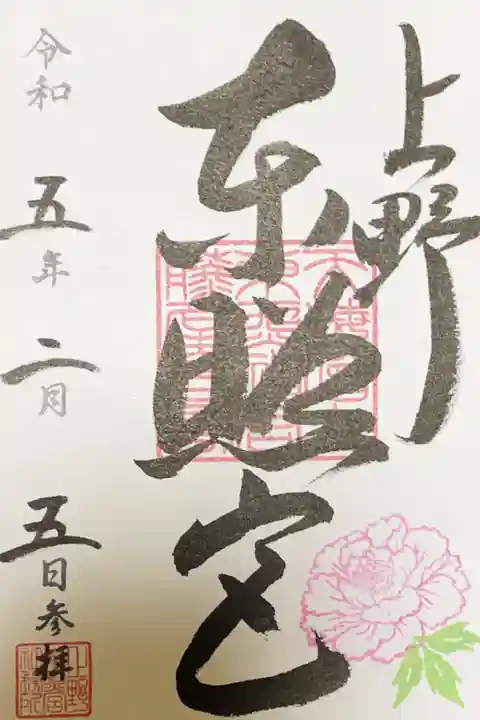 上野
東照宮
令和五年二月五日参拝